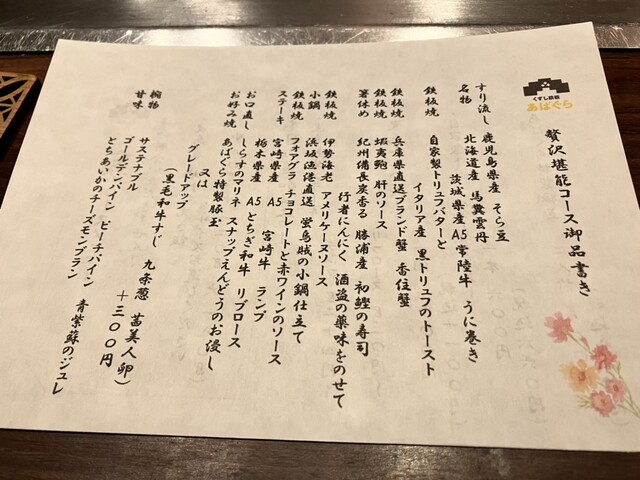 くずし鉄板
あばぐら
贅沢堪能コース御品書き
すり流し 鹿児島県産 そら豆
名物 北海道産 馬糞雲丹
茨城県産A5常陸牛 うに巻き
鉄板焼 自家製トリュフバターと
イタリア産 黒トリュフのトースト
鉄板焼 兵庫県直送ブランド蟹 香住蟹
鉄板焼 蝦夷鮑 肝のソース
箸休め 紀州備長炭香る 勝浦産 初鰹の寿司
行者にんにく 酒盗の薬味をのせて
鉄板焼 伊勢海老 アメリケーヌソース
小鍋 浜坂漁港直送 蛍烏賊の小鍋仕立て
ステーキ フォアグラ チョコレートと赤ワインのソース
宮崎県産 A5 宮崎牛 ランプ
栃木県産 A5 とちぎ和牛 リブロース
お口直し しらすのマリネ スナップえんどうのお浸し
お好み焼 あばぐら特製豚玉
又は
グレードアップ
(黒毛和牛すじ 九条葱 茜美人卵)
+三〇〇円
椀物
甘味 サステナブル
ゴールデンパイン ピーチパイン
とちあいかのチーズモンブラン 青紫蘇のジュレ